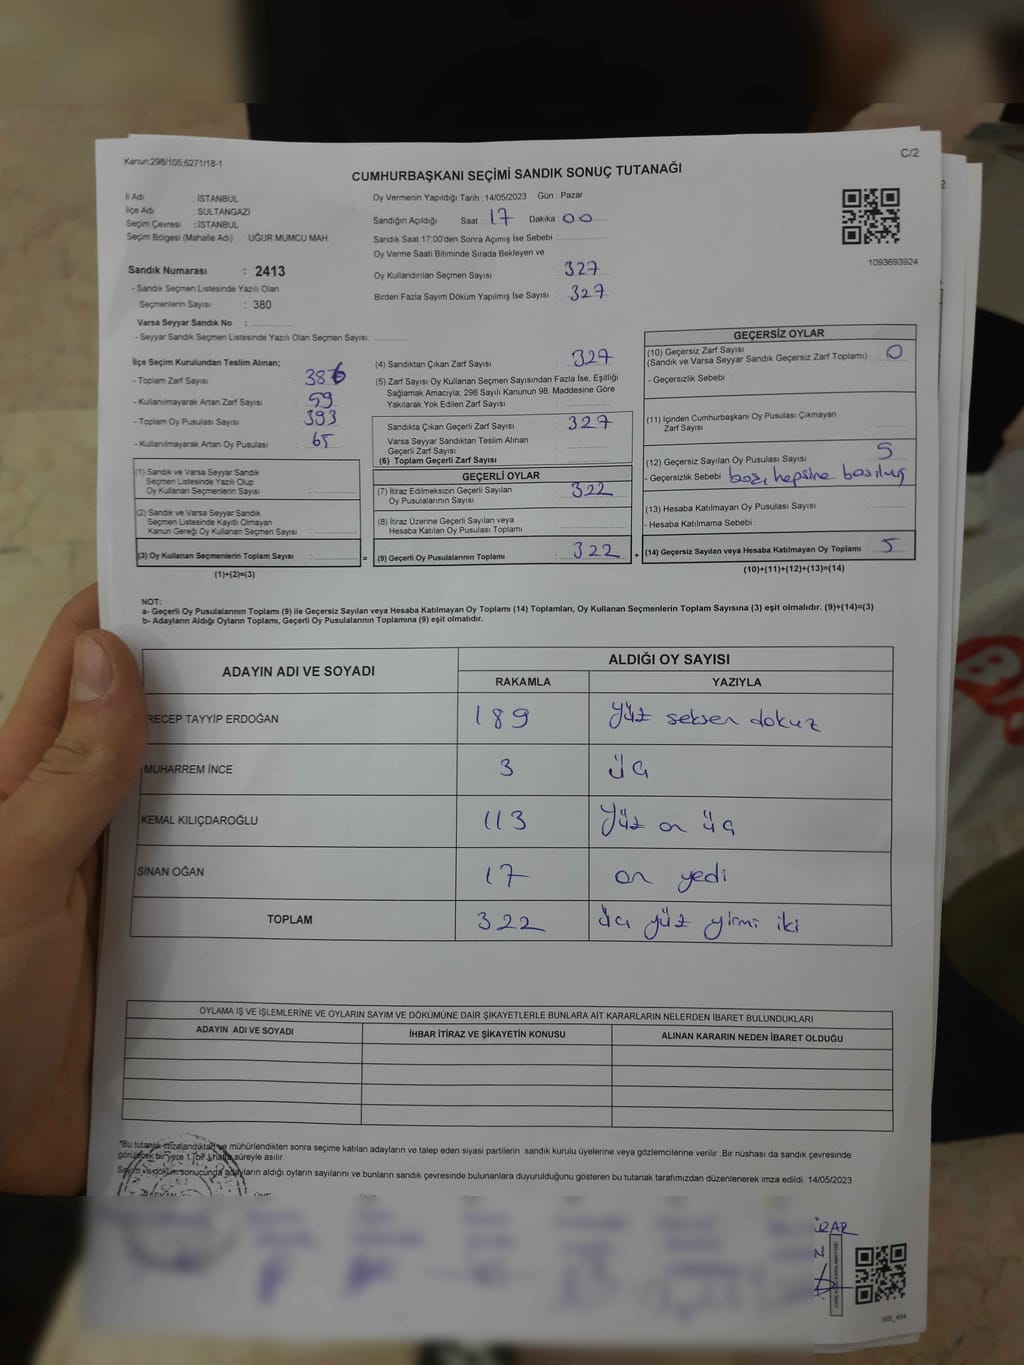 Kanun:298/105,6271/18-1
C/2
CUMHURBAŞKANI SEÇİMİ SANDIK SONUÇ TUTANAĞI
İl Adı : İSTANBUL
İlçe Adı : SULTANGAZİ
Seçim Çevresi : İSTANBUL
Seçim Bölgesi (Mahalle Adı) : UĞUR MUMCU MAH.
Sandık Numarası : 2413
- Sandık Seçmen Listesinde Yazılı Olan
Seçmenlerin Sayısı : 380
Varsa Seyyar Sandık No :
- Seyyar Sandık Seçmen Listesinde Yazılı Olan Seçmen Sayısı:
Oy Vermenin Yapıldığı Tarih : 14/05/2023 Gün : Pazar
Sandığın Açıldığı Saat : 17 Dakika : 00
Sandık Saat 17:00'den Sonra Açımış İse Sebebi :
Oy Verme Saati Bitiminde Sırada Bekleyen ve
Oy Kullandırılan Seçmen Sayısı : 327
Birden Fazla Sayım Döküm Yapılmış İse Sayısı : 327
1093693924
İlçe Seçim Kurulundan Teslim Alınan;
- Toplam Zarf Sayısı : 386
- Kullanılmayarak Artan Zarf Sayısı : 59
- Toplam Oy Pusulası Sayısı : 393
- Kullanılmayarak Artan Oy Pusulası : 65
(1) Sandık ve Varsa Seyyar Sandık
Seçmen Listesinde Yazılı Olup
Oy Kullanan Seçmenlerin Sayısı :
(2) Sandık ve Varsa Seyyar Sandık
Seçmen Listesinde Kayıtlı Olmayan
Kanun Gereği Oy Kullanan Seçmen Sayısı :
(3) Oy Kullanan Seçmenlerin Toplam Sayısı :
(1)+(2)=(3)
(4) Sandıktan Çıkan Zarf Sayısı : 327
(5) Zarf Sayısı Oy Kullanan Seçmen Sayısından Fazla İse, Eşitliği
Sağlamak Amacıyla; 298 Sayılı Kanunun 98. Maddesine Göre
Yakılarak Yok Edilen Zarf Sayısı :
Sandıkta Çıkan Geçerli Zarf Sayısı : 327
Varsa Seyyar Sandıktan Teslim Alınan
Geçerli Zarf Sayısı :
(6) Toplam Geçerli Zarf Sayısı :
GEÇERLİ OYLAR
(7) İtiraz Edilmeksizin Geçerli Sayılan
Oy Pusulalarının Sayısı : 322
(8) İtiraz Üzerine Geçerli Sayılan veya
Hesaba Katılan Oy Pusulası Toplamı :
= (9) Geçerli Oy Pusulalarının Toplamı : 322
GEÇERSİZ OYLAR
(10) Geçersiz Zarf Sayısı
(Sandık ve Varsa Seyyar Sandık Geçersiz Zarf Toplamı) : 0
- Geçersizlik Sebebi :
(11) İçinden Cumhurbaşkanı Oy Pusulası Çıkmayan
Zarf Sayısı :
(12) Geçersiz Sayılan Oy Pusulası Sayısı : 5
- Geçersizlik Sebebi : boş, hepsine basılmış
(13) Hesaba Katılmayan Oy Pusulası Sayısı :
- Hesaba Katılmama Sebebi :
+ (14) Geçersiz Sayılan veya Hesaba Katılmayan Oy Toplamı : 5
(10)+(11)+(12)+(13)=(14)
NOT:
a- Geçerli Oy Pusulalarının Toplamı (9) ile Geçersiz Sayılan veya Hesaba Katılmayan Oy Toplamı (14) Toplamları, Oy Kullanan Seçmenlerin Toplam Sayısına (3) eşit olmalıdır. (9)+(14)=(3)
b- Adayların Aldığı Oyların Toplamı, Geçerli Oy Pusulalarının Toplamına (9) eşit olmalıdır.
ADAYIN ADI VE SOYADI ALDIĞI OY SAYISI
RAKAMLA YAZIYLA
RECEP TAYYİP ERDOĞAN 189 Yüz seksen dokuz
MUHARREM İNCE 3 üç
KEMAL KILIÇDAROĞLU 113 Yüz on üç
SİNAN OĞAN 17 on yedi
TOPLAM 322 üç yüz yirmi iki
OYLAMA İŞ VE İŞLEMLERİNE VE OYLARIN SAYIM VE DÖKÜMÜNE DAİR ŞİKAYETLERLE BUNLARA AİT KARARLARIN NELERDEN İBARET BULUNDUKLARI
ADAYIN ADI VE SOYADI İHBAR İTİRAZ VE ŞİKAYETİN KONUSU ALINAN KARARIN NEDEN İBARET OLDUĞU
*Bu tutanak imzalandıktan ve mühürlendikten sonra seçime katılan adayların ve talep eden siyasi partilerin sandık kurulu üyelerine veya gözlemcilerine verilir .Bir nüshası da sandık çevresinde
görülecek bir yere 1 (bir ) hafta süreyle asılır.
Sayım ve döküm sonucunda adayların aldığı oyların sayılarını ve bunların sandık çevresinde bulunanlara duyurulduğunu gösteren bu tutanak tarafımızdan düzenlenerek imza edildi. 14/05/2023